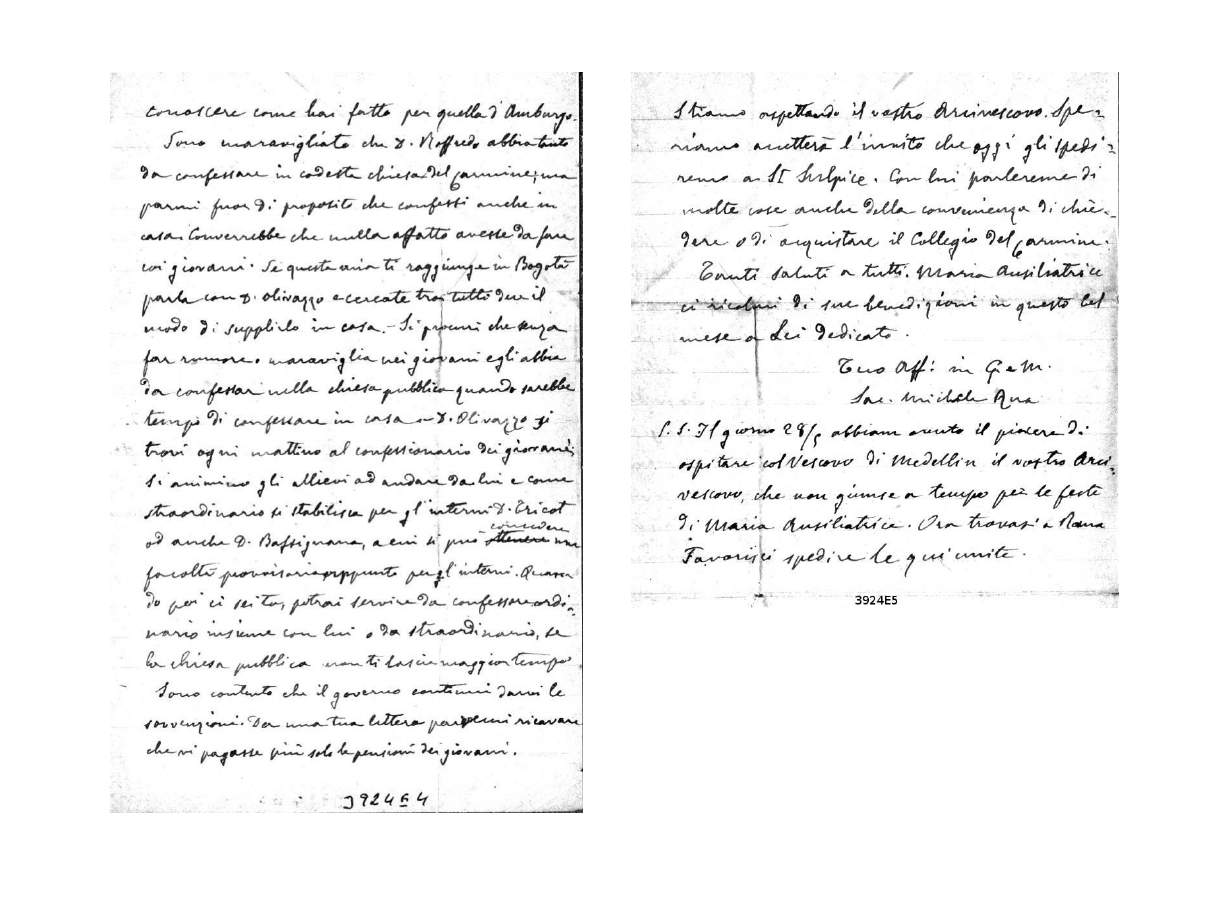 conoscere come hai fatto per quella d'Amburgo.
Sono maravigliato che D. Roffredo abbia tanto
da confessare in codesta chiesa del Carmine; ma
parmi fuor di proposito che confessi anche in
casa. Converrebbe che nulla affatto avesse da fare
coi giovani. Se questa mia ti raggiunge in Bogotà
parla con D. Olivazzo e cercate tra tutti due il
modo di supplirlo in casa. - Si procuri che senza
far rumore o maraviglia nei giovani egli abbia
da confessar nella chiesa pubblica quando sarebbe
tempo di confessare in casa e D. Olivazzo si
trovi ogni mattino al confessionario dei giovani;
Si animino gli allievi ad andare da lui e come
straordinario si stabilisca per gl'interni D. Ericot
od anche D. Bassignana, a cui si può ottenere una
concedere
facoltà provvisoria appunto per gl'interni. Quan
do poi ci sei tu, potrai servire da confessore ordi-
nario insieme con lui o da straordinario, se
la chiesa pubblica non ti lascia maggior tempo
Sono contento che il governo continui darvi le
sovvenzioni. Da una tua lettera parvemi ricavare
che vi pagasse più solo le pensioni dei giovani.
3924E4
Stiamo aspettando il vostro Arcivescovo. Spe-
riamo accetterà l'invito che oggi gli spedi-
remo a St Sulpice. Con lui parleremo di
molte cose anche della convenienza di chie-
dere o di acquistare il Collegio del Carmine.
Tanti saluti a tutti. Maria Ausiliatrice
ci ricolmi di sue benedizioni in questo bel
mese a Lei dedicato.
Tuo Aff: in G e M.
Sac. Michele Rua
P. S. Il giorno 28/5 abbiam avuto il piacere di
ospitare col Vescovo di Medellin il vostro Arci-
vescovo, che non giunse a tempo per le feste
di Maria Ausiliatrice. Ora trovasi a Roma
Favorisci spedire le qui unite.
3924E5